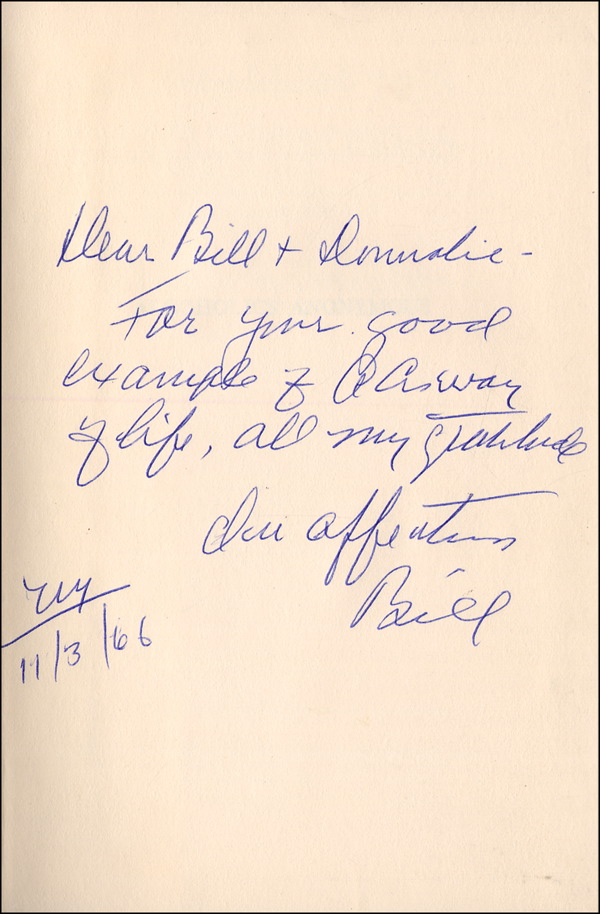 Dear Bill + Donnalie -
For your good
example of AA's way
of life, all my gratitude
In affection
Bill
NY
11/3/66